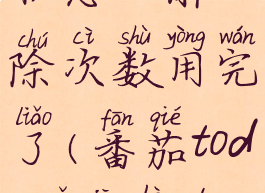 chú cì shù yòng wán
除次数用完
liǎo fān qié
了(番茄tod